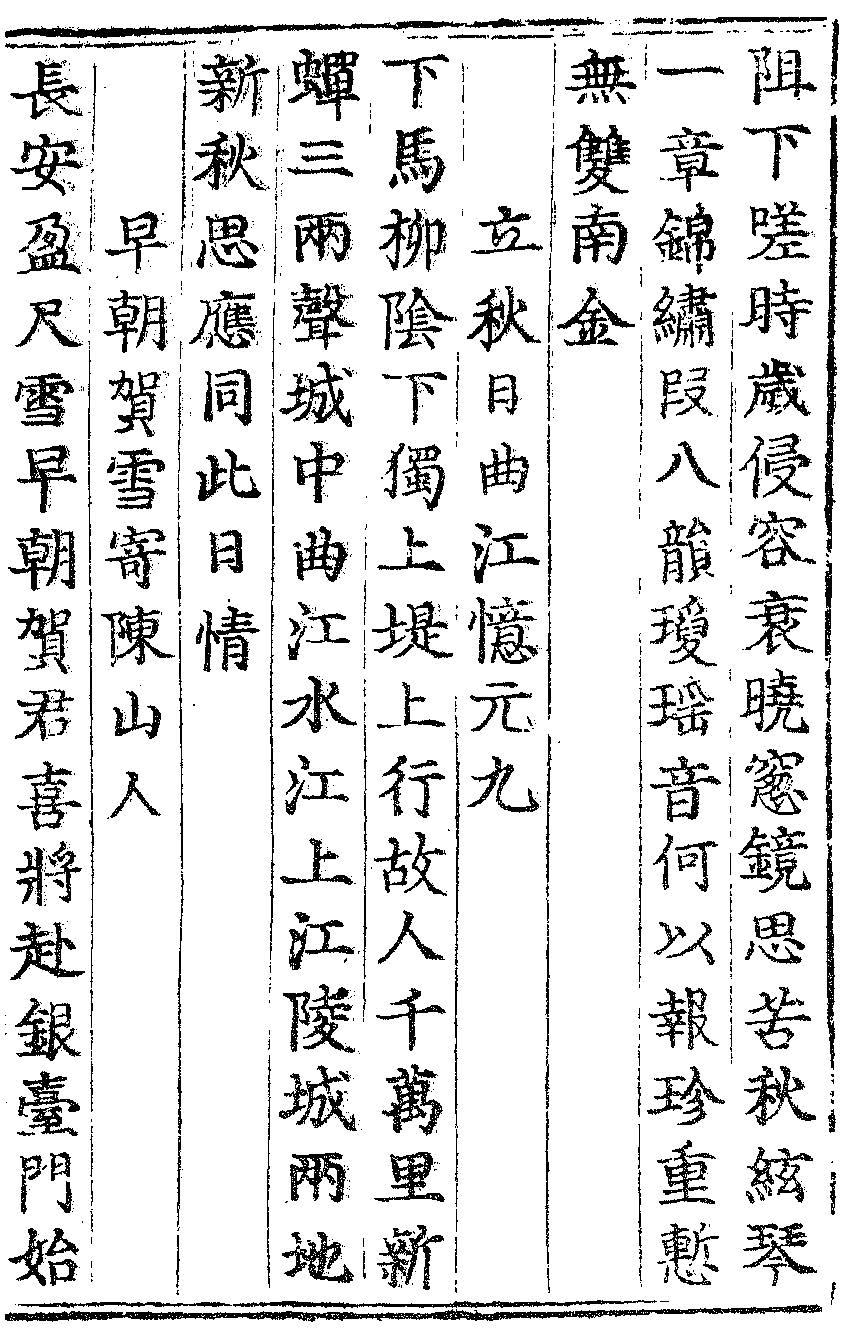 阻下嗟時歲侵容衰曉窻鏡思苦秋絃琴
一章錦繡段八韻瓊瑶音何以報珍重慙
無雙南金
立秋日曲江憶元九
下馬柳陰下獨上堤上行故人千萬里新
蟬三兩聲城中曲江水江上江陵城兩地
新秋思應同此日情
早朝賀雪寄陳山人
長安盈尺雪早朝賀君喜將赴銀臺門始